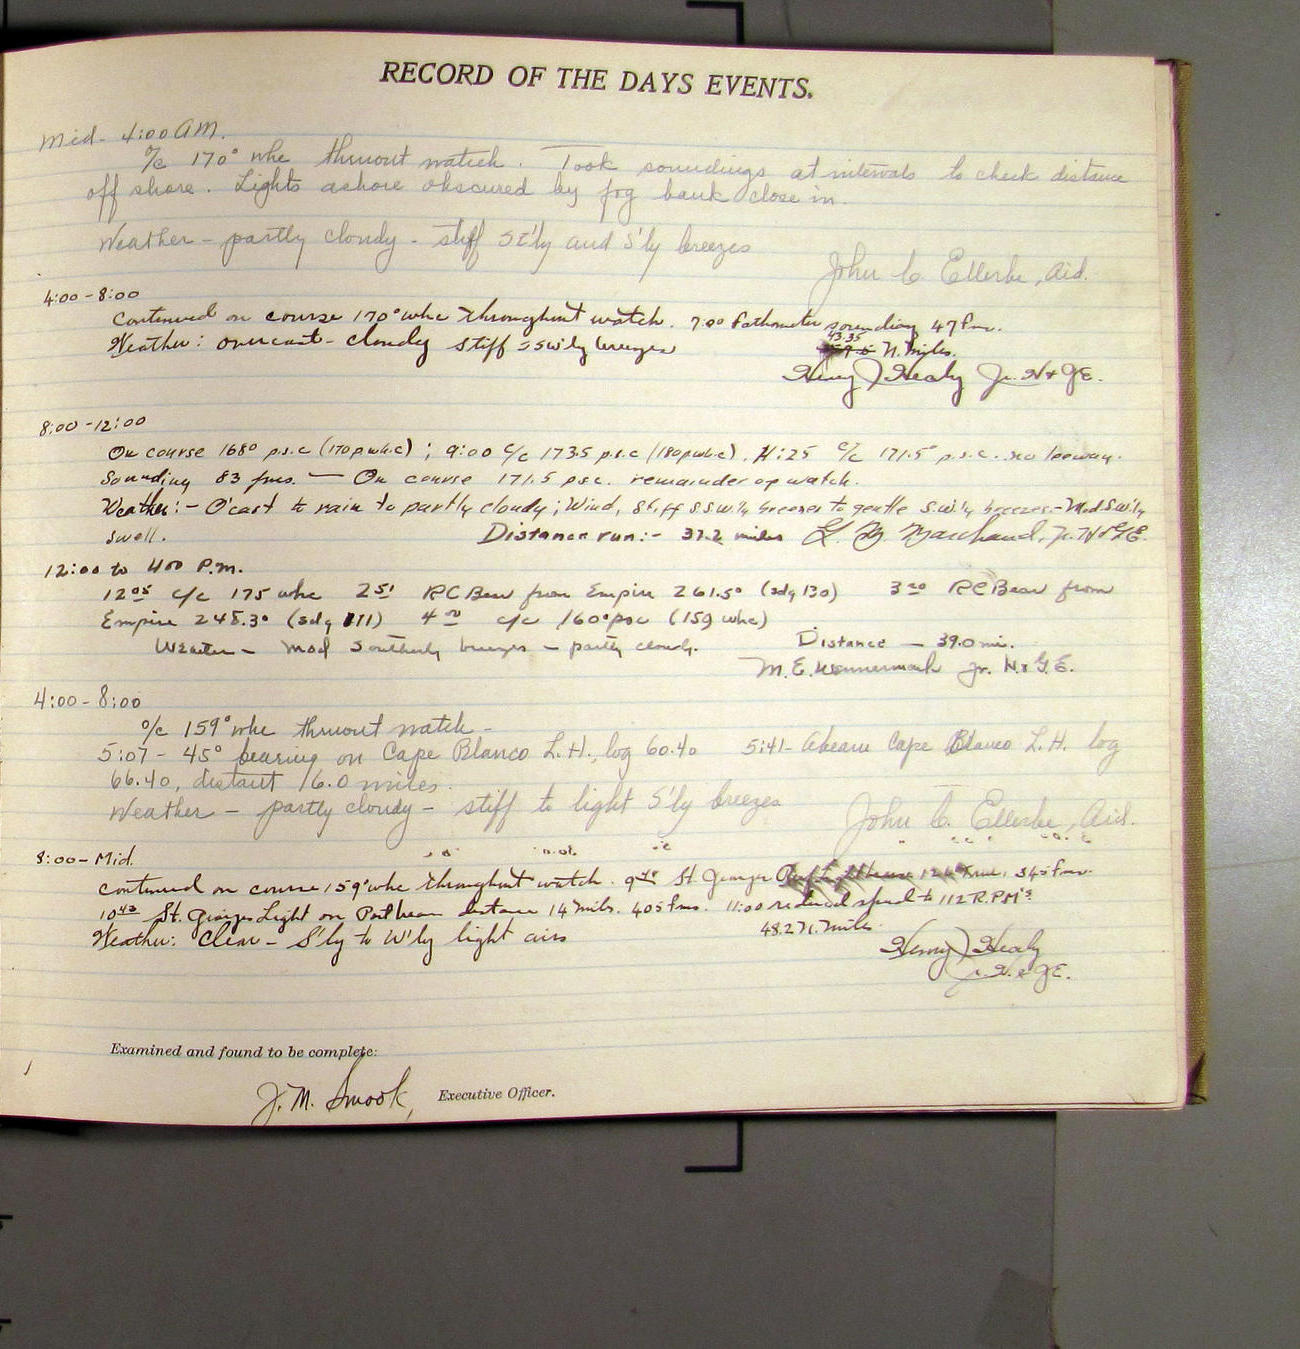 RECORD OF THE DAYS EVENTS.
Mid- 4:00 AM.
o/c 170° whc thruout watch. Took soundings at intervals to check distance
off shore. Lights ashore obscured by fog bank close in.
Weather - partly cloudy - stiff SE'ly and S'ly breezes
John C Ellerbe, Aid.
4:00 - 8:00
Continued on course 170° whc throughout watch. 7:00 fathometer sounding 47 fms.
43.35
Weather: overcast - cloudy stiff SSW'ly breezes N. Miles.
Henry J Healy Jr. H & GE.
8:00 - 12:00
On course 168° p.s.c (170 p.w.h.c) ; 9:00 c/c 173.5 p.s.c (180 p.w.h.c). 11:25 c/c 171.5° p.s.c. no leeway.
Sounding 83 fms. — On course 171.5 psc. remainder of watch.
Weather:- O'cast to rain to partly cloudy; Wind, Stiff S.S.W.'ly breezes to gentle S.W.'ly breezes - Mod S.W.'ly
swell. Distance run:- 37.2 miles Jr. H & GE.
12:00 to 400 P.M.
12 05 c/c 175 whc 2 51 RC Bear from Empire 261.5° (sdg 130) 3 20 RC Bear from
Empire 245.3° (sdg 111) 4 00 c/c 160° psc (159 whc)
Weather - Mod Southerly breezes - partly cloudy. Distance — 39.0 mi.
M.E. Wennermark Jr. H. & G.E.
4:00 - 8:00
o/c 159° whc thruout watch -
5:07 - 45° bearing on Cape Blanco L.H., log 60.40 5:41 - Abeam Cape Blanco L.H. log
66.40, distant 16.0 miles.
Weather - partly cloudy - stiff to light S'ly breezes
John C. Ellerbe, Aid.
8:00 - Mid.
Continued on course 159° whc throughout watch. St. George 345 fms.
10 43 St. Georges Light on Port beam distance 14 miles. 405 fms. 11:00 reduced speed to 112 R.P.M's
Weather: Clear - S'ly to W'ly light airs 48.2 N. Miles
Henry J Healy
Jr. H. & GE.
Examined and found to be complete:
J. M. Smook, Executive Officer.